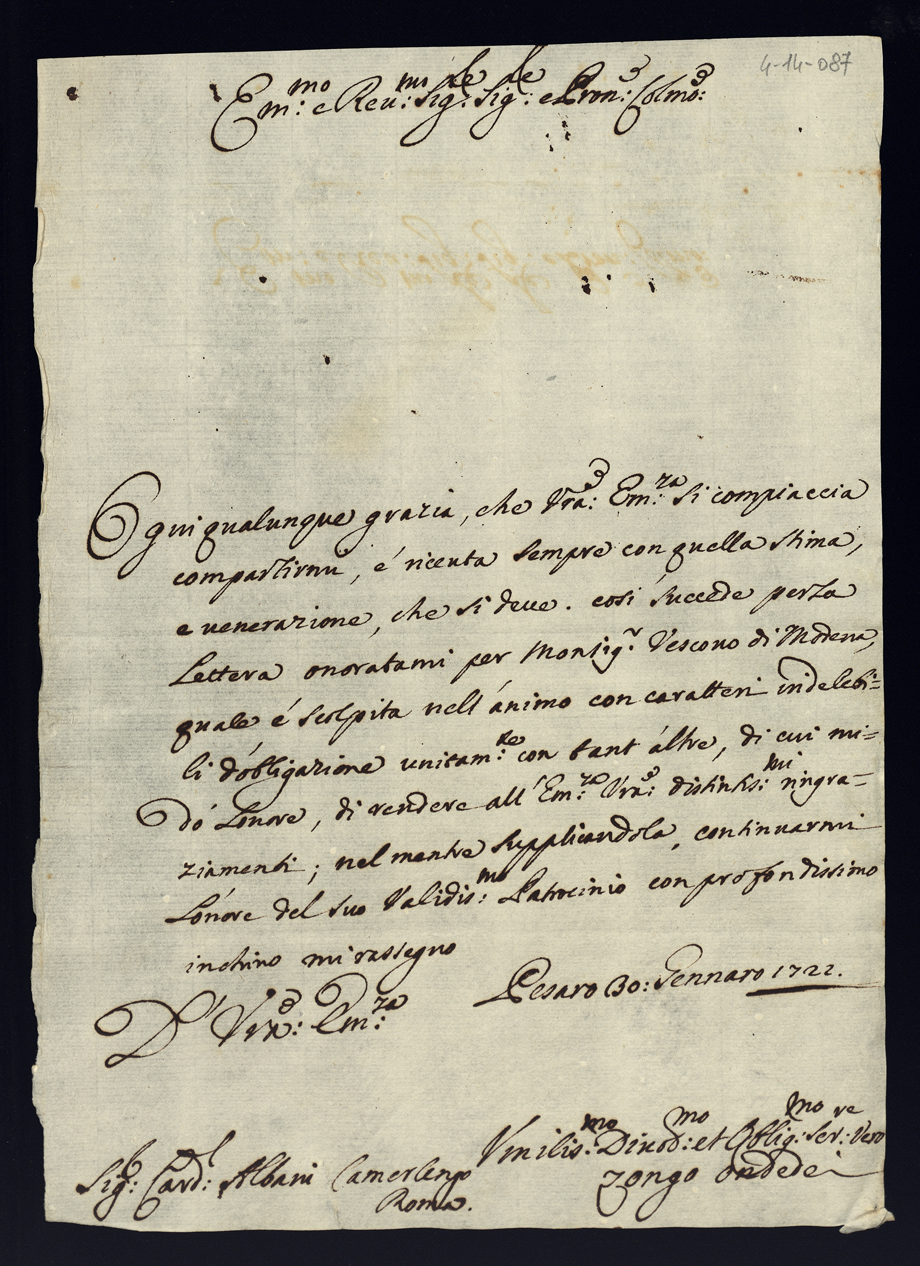 4-14-087
Em:mo e Reu:mi Sig:re Sig:re e Pron: Colmo:
Ogni qualunque grazia, che Vra: Em:za si compiaccia
compartirmi, é riceuta sempre con quella stima,
e uenerazione, che si deue. così succede per la
Lettera onoratami per Monsig.r Vescouo di Modena,
quale é scolpita nell'ánimo con caratteri indelebi=
li d'óbligazione unitam:te con tant'áltre, di cui mi=
dó Lonore, di rendere all'Em:za Vra: distintis:mi ringra=
ziamenti; nel mentre supplicandola, continuarmi
L'onore del suo Validis:mo Patrocinio con profondissimo
inchino mi rassegno
Pesaro 30: Gennaro 1722.
D' Vra: Em:za
Vmilis:mo Diuot:mo et Oblig:mo Ser:re Vero
Zongo Ondedei
Sig:r Card:l Albani Camerlengo
Roma.